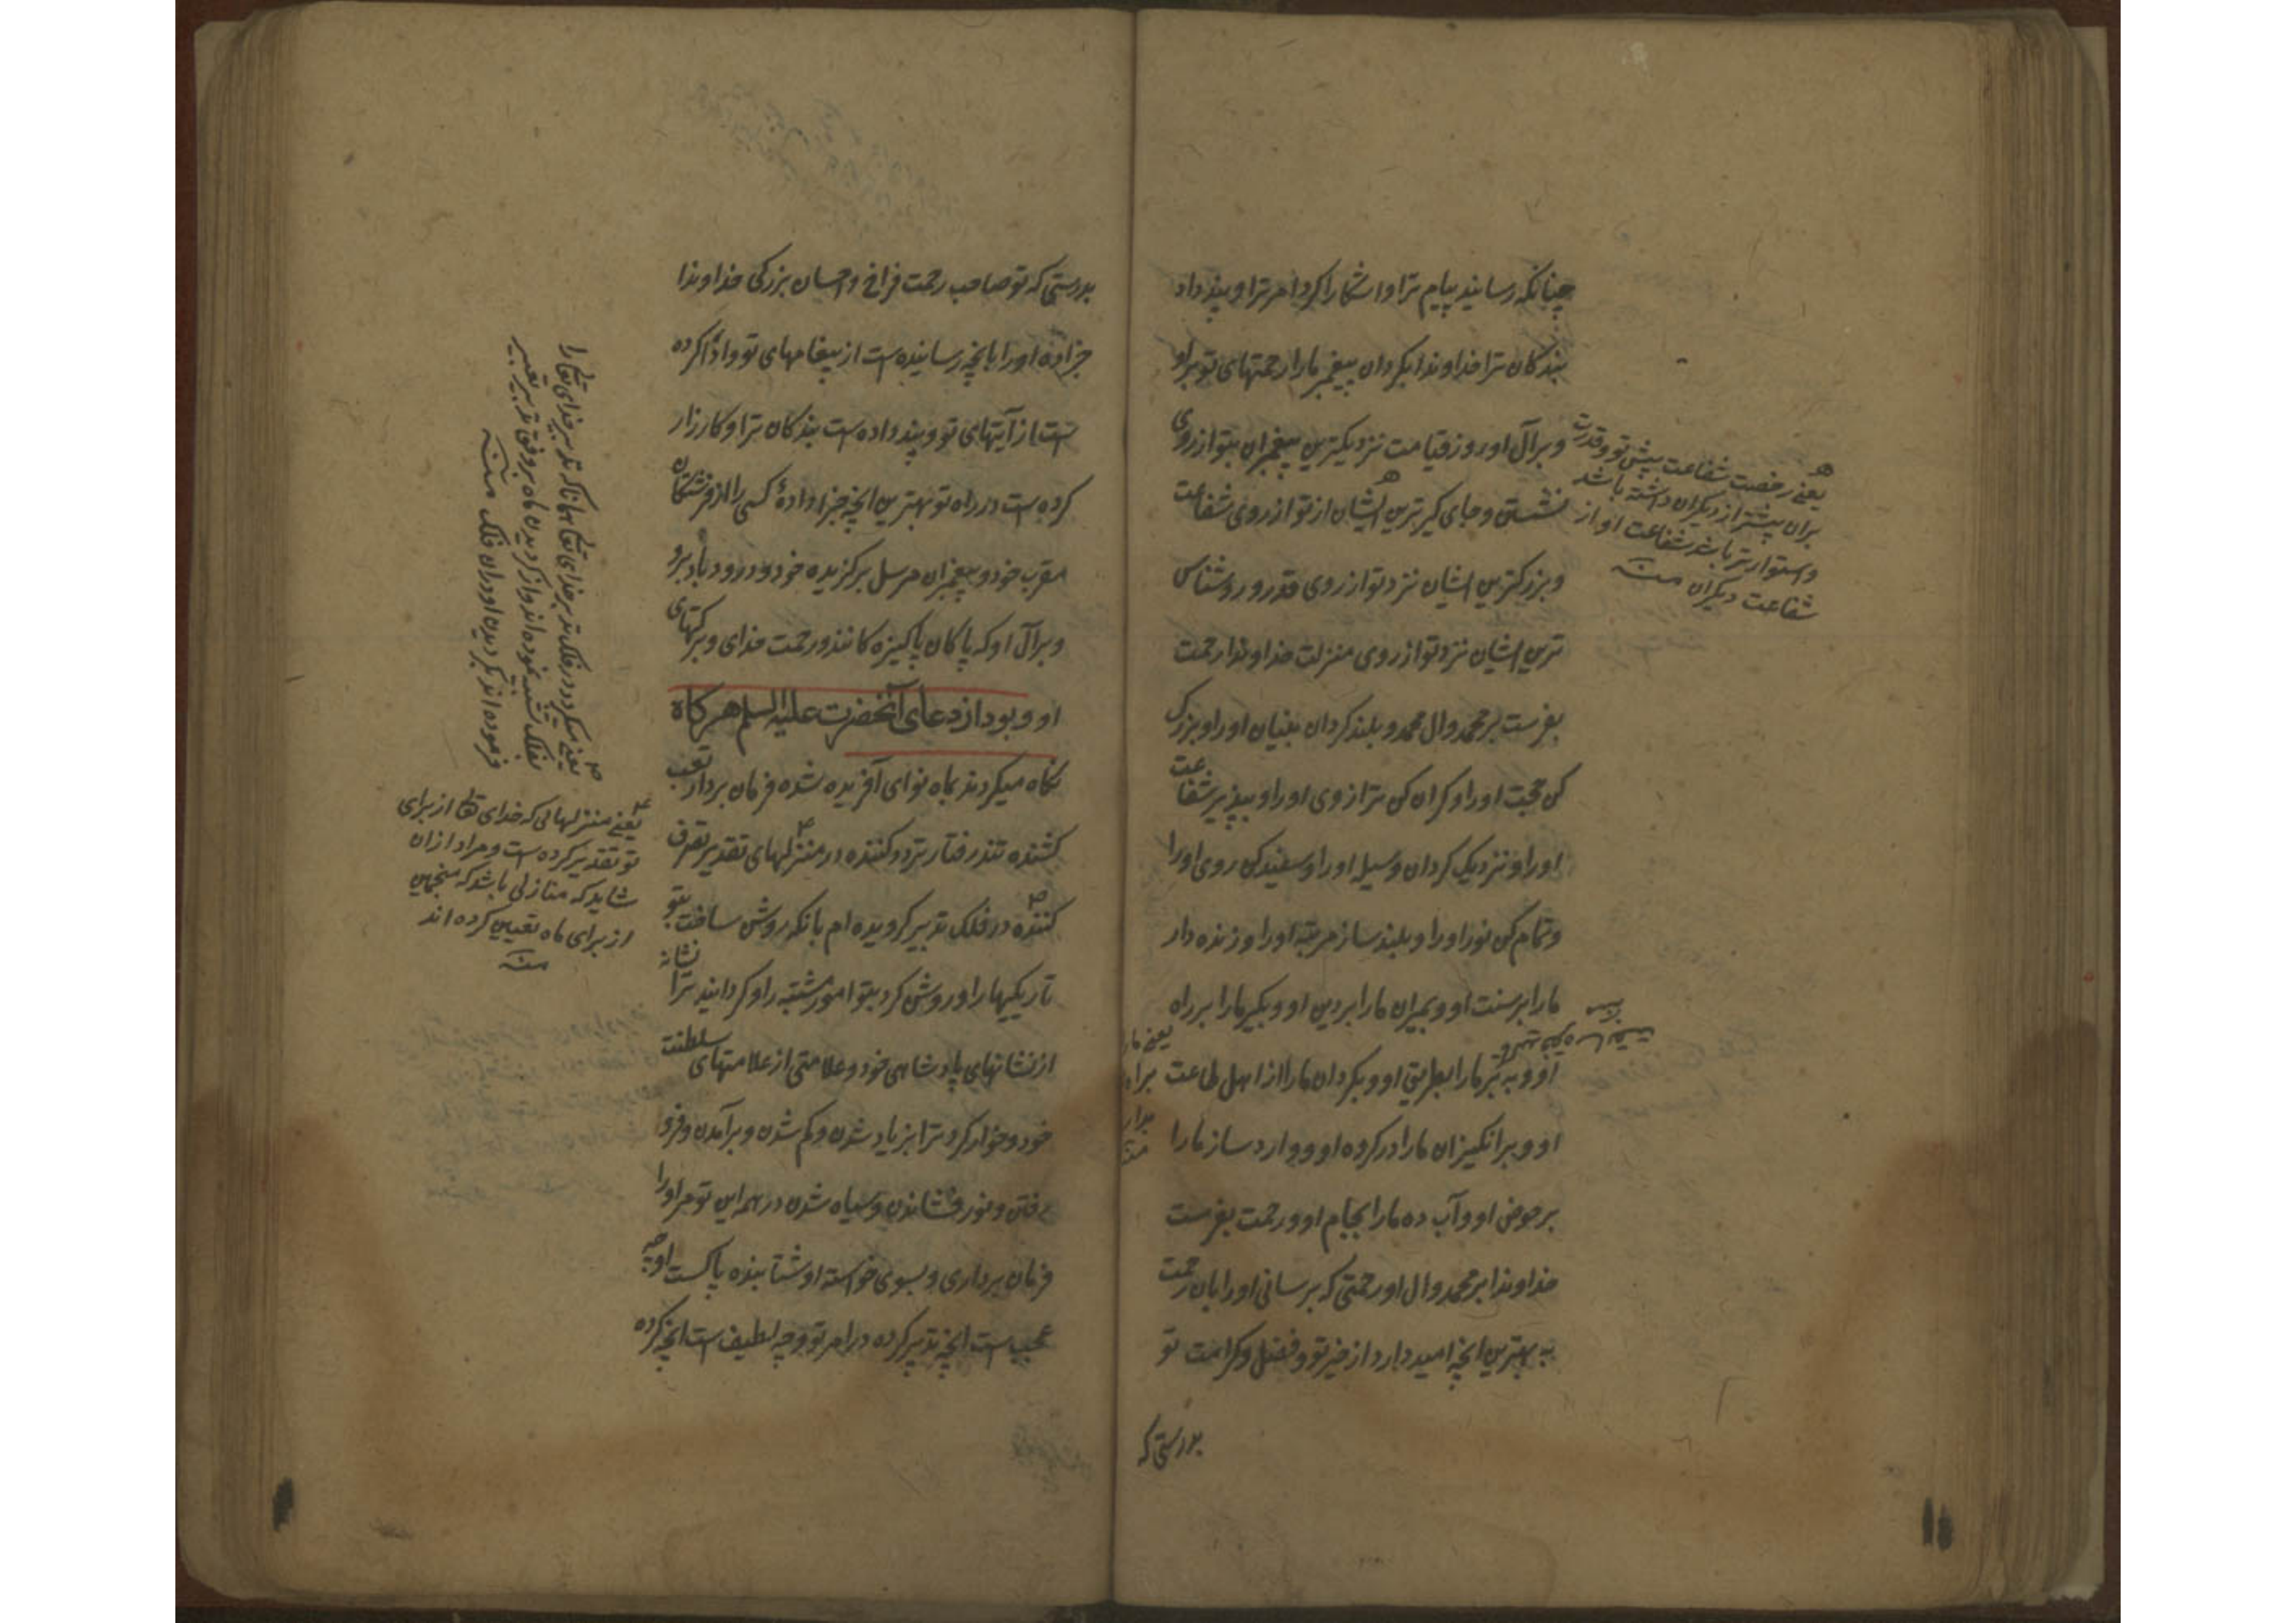 چنانکه رسانید پیام ترا و اشکارا کرد امر ترا و پند داد
بندکان ترا خداوندا بکردان پیغمبر ما را رحمتهای تو بر او
و بر آل او روز قیامت نزدیکترین پیغمبران بتو از روی
نشستن و جای کیر ترین ایشان از تو از روی شفاعت
و بزرکترین ایشان نزد تو از روی قدر و روشناس
ترین ایشان نزد تو از روی منزلت خداوندا رحمت
بفرست بر محمد و ال محمد و بلند کردان بنیان او را و بزرک
کن حجت او را و کران کن ترازوی او را و بپذیر شفاعت
او را و نزدیک کردان وسیله او را و سفید کن روی او را
و تمام کن نور او را و بلند ساز مرتبه او را و زنده دار
ما را بر سنت او و بمیران ما را بر دین او و بکیر ما را بر راه
او و ببر ما را بطریق او و بکردان ما را از اهل طاعت
او و برانکیزان ما را در کرده او و وارد ساز ما را
بر حوض او و آب ده ما را بجام او و رحمت بفرست
خداوندا بر محمد و ال او رحمتی که برسانی او را بان رحمت
به بهترین انچه امید دارد از خیر تو و فضل و کرامت تو
بدرستی که
یعنی رخصت شفاعت پیش تو و قدرت
بران پیشتر از دیکران داشته باشد
و استوارتر باشد شفاعت او از
شفاعت دیکران منه
یعنی ما را
براه
بدار
منه
بدرستی که تو صاحب رحمت فراخ و احسان بزرکی خداوندا
جزا ده او را بانچه رسانیده است از پیغامهای تو و ادا کرده
است از آیتهای تو و پند داده است بندکان ترا و کارزار
کرده است در راه تو بهترین انچه جزا دادهٔ کسی را از فرشتکان
مقرب خود و پیغمبران مرسل برکزیده خود و درود باد برو
و بر آل او که پاکان پاکیزه کانند و رحمت خدای و برکتهای
او و بود از دعای آنحضرت علیه السلم هر کاه
نکاه میکردند بماه نو ای آفریده شده فرمان بردار تعب
کشنده تند رفتار تردد کننده در منزلهای تقدیر تصرف
کننده در فلک تدبیر کرویده ام بانکه روشن ساخت بتو
تاریکیها را و روشن کرد بتو امور مشتبه را و کردانید ترا نشانه
از نشانهای پادشاهی خود و علامتی از علامتهای سلطنت
خود و خوار کرد ترا بزیاد شدن و کم شدن و برآمدن و فرو
رفتن و نور فشاندن و سیاه شدن در همه این تو مر او را
فرمان برداری و بسوی خواسته او شتابنده پاکست او چه
عجیب است انچه تدبیر کرده در امر تو و چه لطیف است انچه کرده
یعنی میکردد در فلک تدبیر خدای تعالی همانا که تدبیر خدای تعالی را
بفلک تشبیه نموده اند و از کردیدن ماه بر وفق تدبیر تعبیر
فرموده اند بکردیدن او در ان فلک منه
یعنی منزلهائی که خدای تعالی از برای
تو تقدیر کرده است و مراد ازان
شاید که منازلی باشد که منجمین
از برای ماه تعیین کرده اند
منه